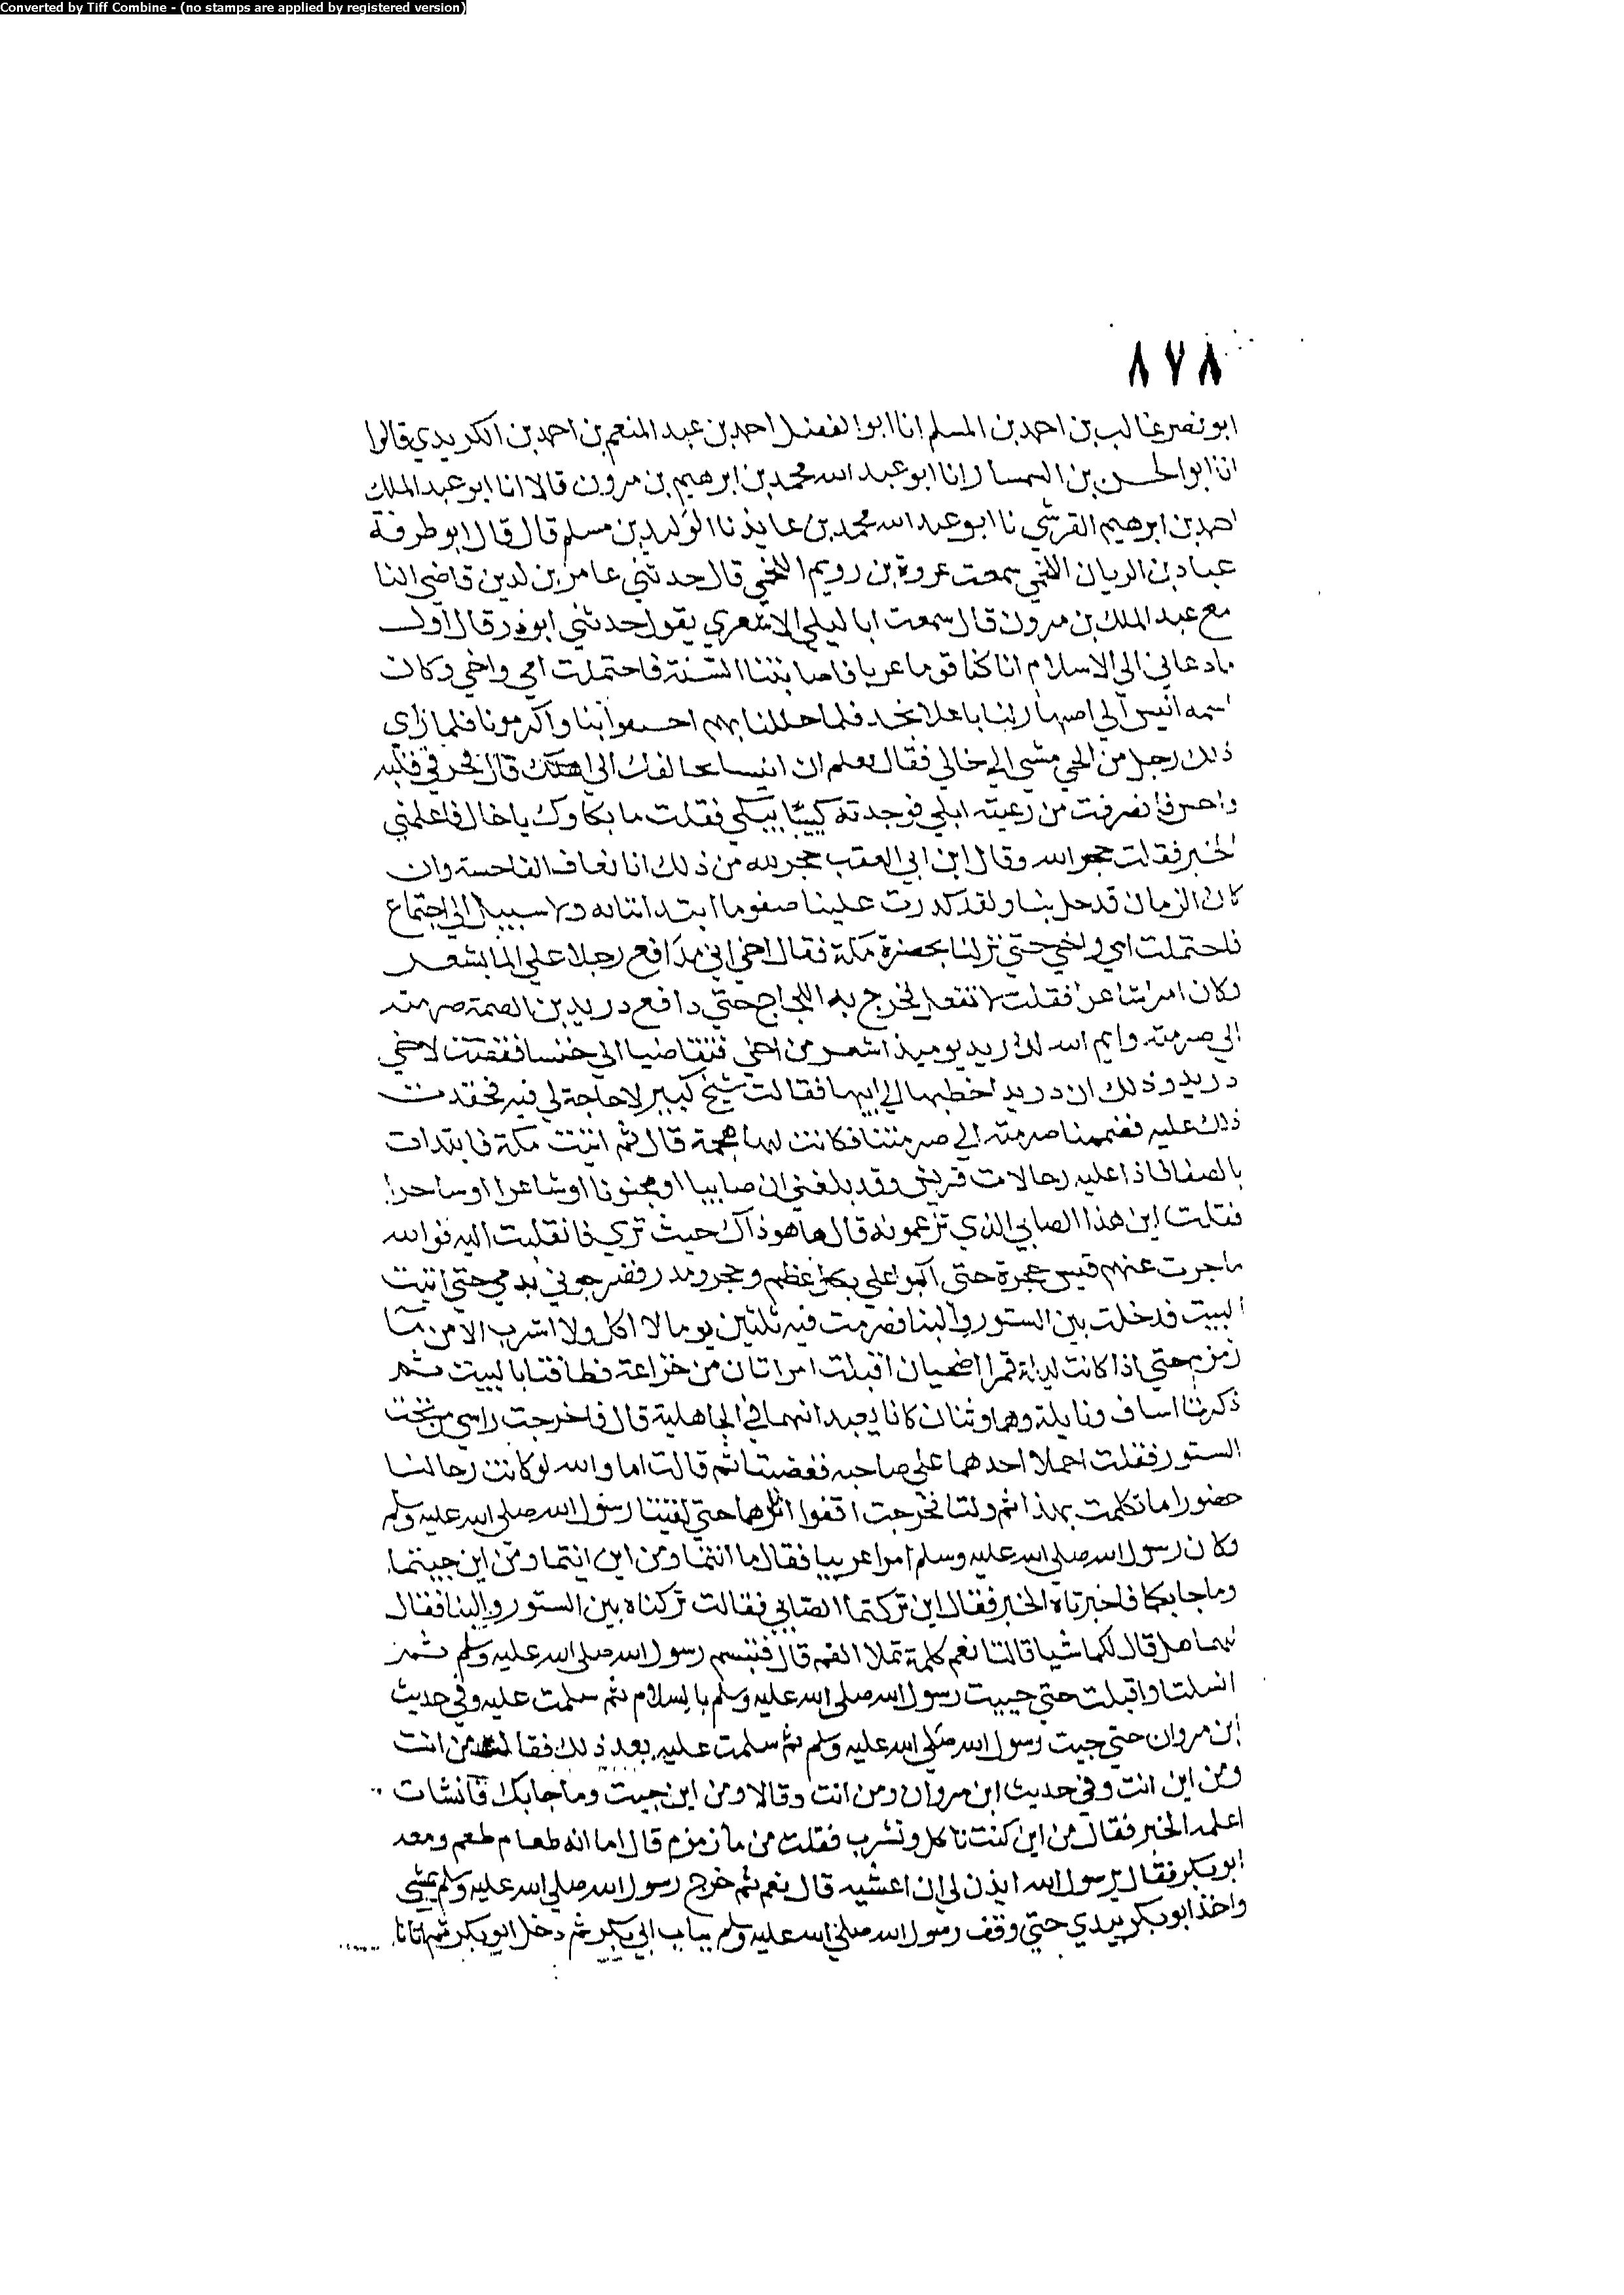 Converted by Tiff Combine - (no stamps are applied by registered version)
٨٧٨
ابو نصر غالب بن احمد بن المسلم انا ابو الفضل احمد بن عبد المنعم بن احمد بن الكريدي قالوا
انا ابو الحسن بن السمسار انا ابو عبد الله محمد بن ابرهيم بن مرون قالا انا ابو عبد الملك
احمد بن ابرهيم القرشي نا ابو عبد الله محمد بن عايذ نا الوليد بن مسلم قال قال ابو طرفة
عباد بن الريان اللخمي سمعت عروة بن رويم اللخمي قال حدثني عامر بن لدين قاضي النا
مع عبد الملك بن مرون قال سمعت ابا ليلي الاشعري يقول حدثني ابو ذر قال اول
ما دعاني الي الاسلام انا كنا قوما عربا فاصابتنا السنة فاحتملت امي واخي وكان
اسمه انيس الي اصهار لنا باعلا نجد فلما حللنا بهم اكرمونا فلما راي
ذلك رجل من الحي مشي الي خالي فقال تعلم ان انيسا يخالفك الي اهلك قال فحز في قلبه
فانصرفت من رعية ابلي فوجدته كييبا يبكي فقلت ما بكاوك يا خال فاعلمني
الخبر فقلت حجر الله وقال ابن ابي العقب حجر لله من ذلك انا نعاف الفاحسة وان
كان الزمان قد حل بنا ولقد كدرت علينا صفو ما ابتداتنا به ولا سبيل الي اجتماع
فاحتملت امي واخي حتي نزلنا بحضرة مكة فقال اخي اني مدافع رجلا علي الما بشعر
وكان امرا شاعرا فقلت لا تفعل فخرج به اللجاج حتي دافع دريد بن الصمة صرمته
الي صرمته وايم الله لدريد يوميذ اشعر من اخي فتقاضيا الي خنسا ففضلت لاخي
دريد وذلك ان دريد خطبها الي ابيها فقالت شيخ كبير لا حاجة لي فيه فحقدت
ذلك عليه فضممنا صرمته الي صرمتنا فكانت لنا هجمة قال ثم اتيت مكة فابتدات
بالصفا فاذا عليه رجالات قريش وقد بلغني ان صابيا او مجنونا او شاعرا او ساحرا
فقلت اين هذا الصابي الذي تزعمونه قال ها هو ذاك حيث تري فانقلبت اليه فوالله
ما جرت عنهم قيس حجرة حتي اكبوا علي بكل عظم وحجر ومدر فضرجوني بدمي حتي اتيت
البيت فدخلت بين الستور والبنا فصرمت فيه ثلثين يوما لا اكل ولا اشرب الا من ما
زمزم حتي اذا كانت ليلة قمرا اضحيان اقبلت امراتان من خزاعة فطافتا بالبيت ثم
ذكرتا اساف ونايلة وهما وثنان كانا يعبدانهما في الجاهلية قال فاخرجت راسي من تحت
الستور فقلت احملا احدهما علي صاحبه فغضبتا ثم قالت اما والله لو كانت رجالنا
حضورا ما تكلمت بهذا ثم ولتا فخرجت اقفوا اثرهما حتي لقيتا رسول الله صلي الله عليه وسلم
وكان رسول الله صلي الله عليه وسلم امرا عربيا فقال ما انتما ومن اين انتما ومن اين جيتما
وما جا بكما فاخبرتاه الخبر فقال اين تركتما الصابي فقالت تركناه بين الستور والبنا فقال
لهما هل قال لكما شيا قالتا نعم كلمة تملا الفم قال فتبسم رسول الله صلي الله عليه وسلم ثم
انسلتا واقبلت حتي حييت رسول الله صلي الله عليه وسلم بالسلام ثم سلمت عليه وفي حديث
ابن مروان حتي جيت رسول الله صلي الله عليه وسلم ثم سلمت عليه بعد ذلك فقال من انت
ومن اين انت وفي حديث ابن مروان ومن انت وقالا ومن اين جيت وما جا بك فانشات
اعلمه الخبر فقال من اين كنت تاكل وتشرب فقلت من ما زمزم قال اما انه طعام طعم ومعه
ابو بكر فقال يرسول الله ايذن لي ان اعشيه قال نعم ثم خرج رسول الله صلي الله عليه وسلم يمشي
واخذ ابو بكر بيدي حتي وقف رسول الله صلي الله عليه وسلم بباب ابي بكر ثم دخل ابو بكر ثم اتانا